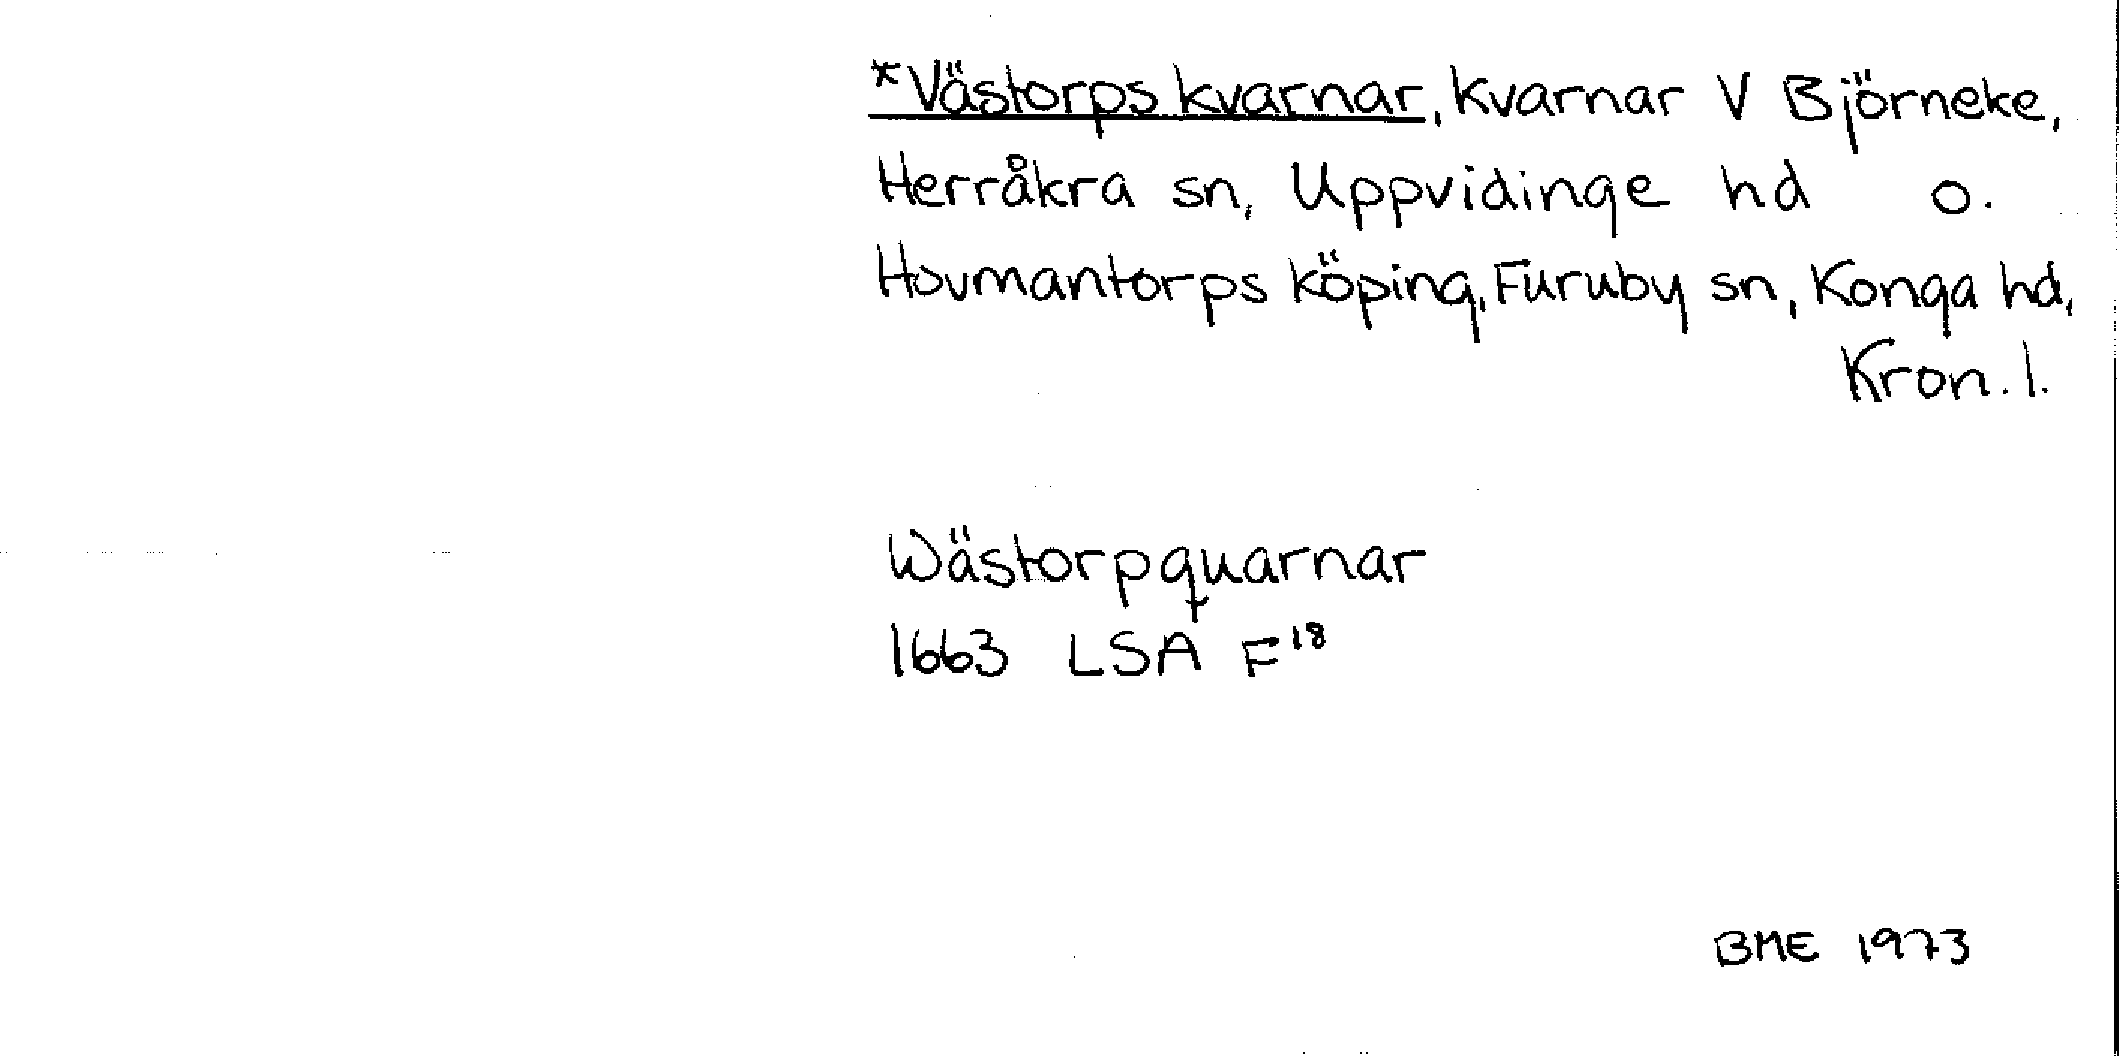 *Västorps kvarnar, kvarnar V Björneke,
Herråkra sn, Uppvidinge hd o.
Hovmantorps köping, Furuby sn, Konga hd,
Kron. l.
Wästorpquarnar
1663 LSA F18
BME 1973